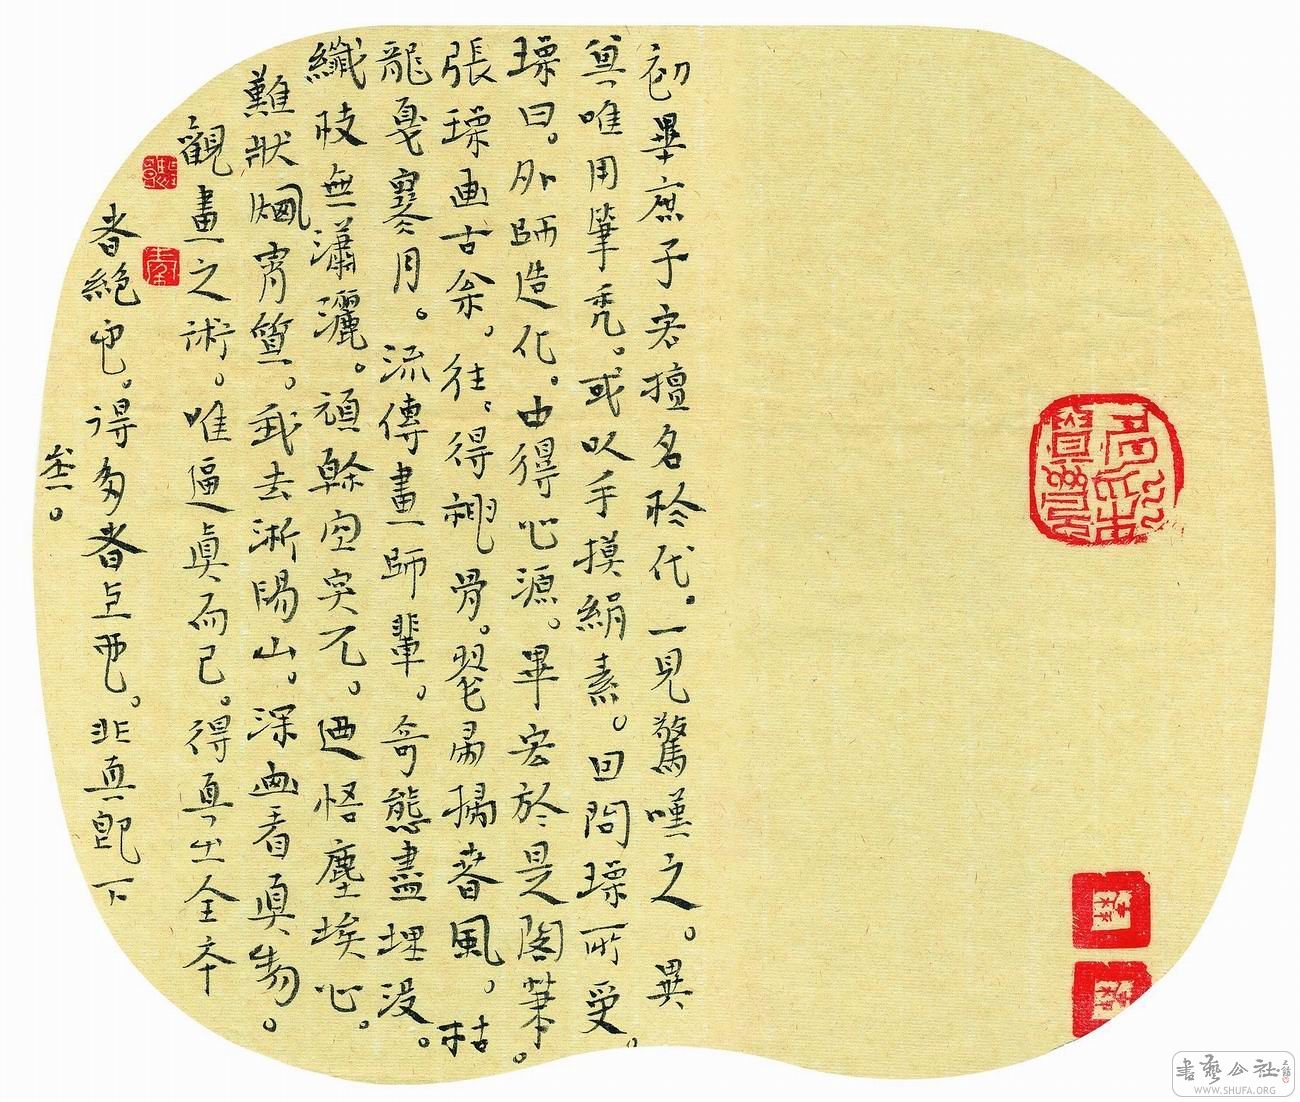 初畢庶子宏擅名於代。一見驚嘆之。異
其唯用筆禿。或以手摸絹素。因問璪所受。
璪曰。外師造化。中得心源。畢宏於是閣筆。
張璪画古松。往、得神骨。翠帚掃春風。枯
龍戛寒月。流傳畫師輩。奇態盡埋没。
纖枝無瀟灑。頑幹空突兀。迺悟塵埃心。
難狀烟霄質。我去淅陽山。深画看真物。
觀畫之術。唯逼真而已。得真之全本
者絶也。得多者上也。非真即下
矣。
書藝公社
WWW.SHUFA.ORG